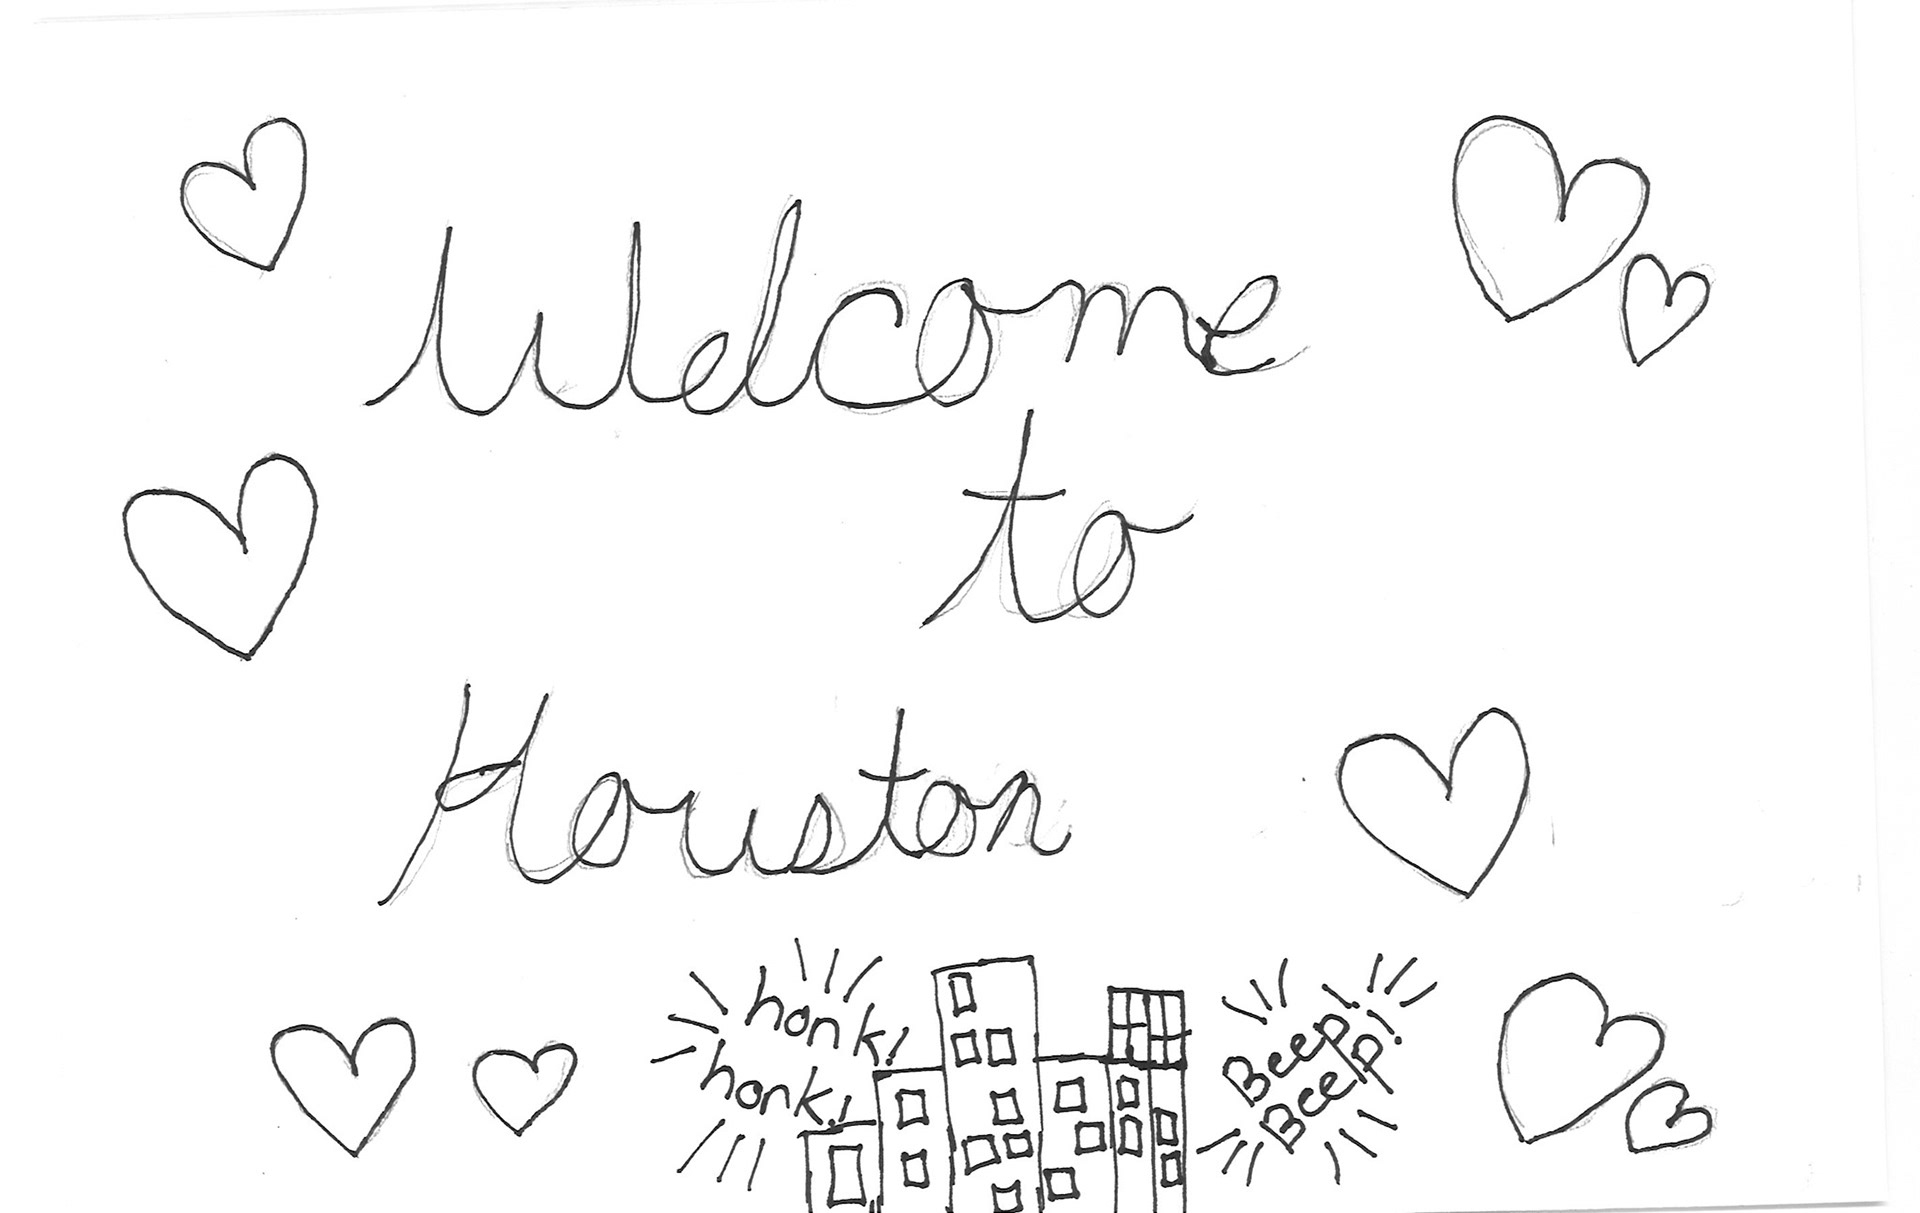 Welcome
to
Houston
honk!
honk!
Beep!
Beep!